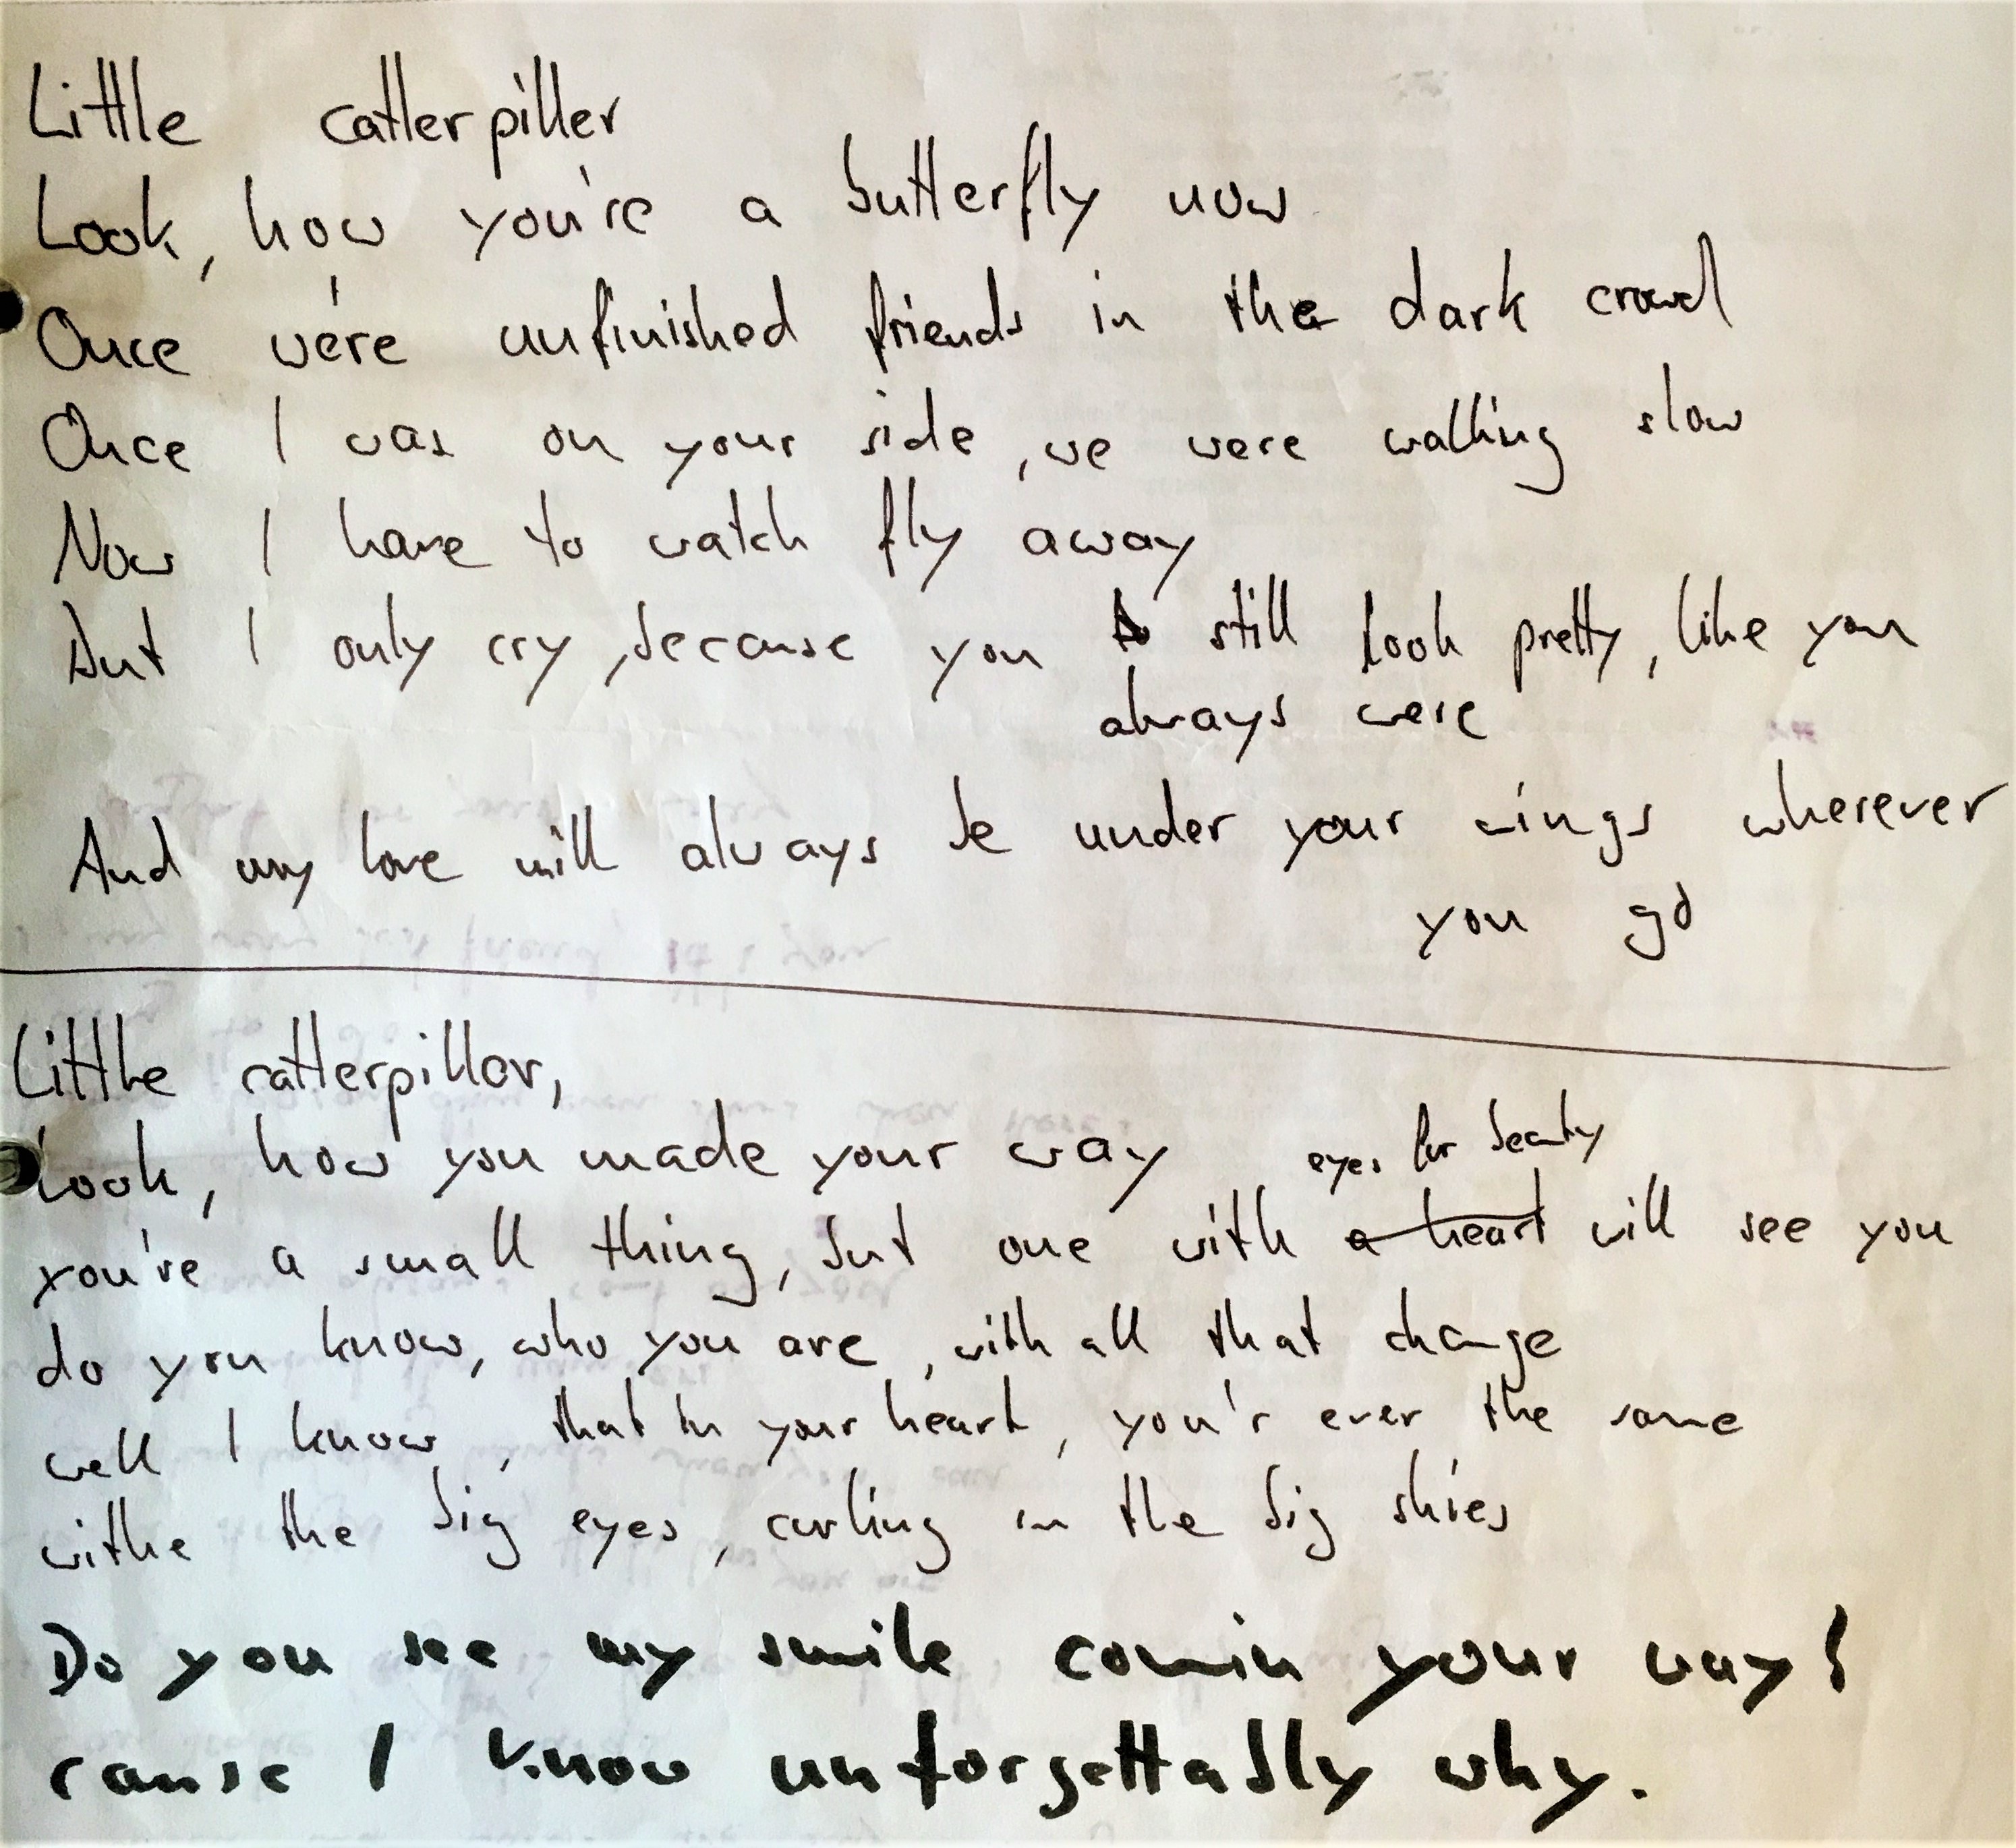 Little catterpiller
Look, how you're a butterfly now
Once we're unfinished friends in the dark crowd
Once I was on your side, we were walking slow
Now I have to watch fly away
But I only cry, because you still look pretty, like you
always were
And my love will always be under your wings wherever
you go
Little catterpillar,
Look, how you made your way
eyes for beauty
you're a small thing, but one with a heart will see you
do you know, who you are, with all that change
well I know, that in your heart, you'r ever the same
withe the big eyes, curling in the big skies
Do you see my smile comin your way?
cause I know unforgettably why.